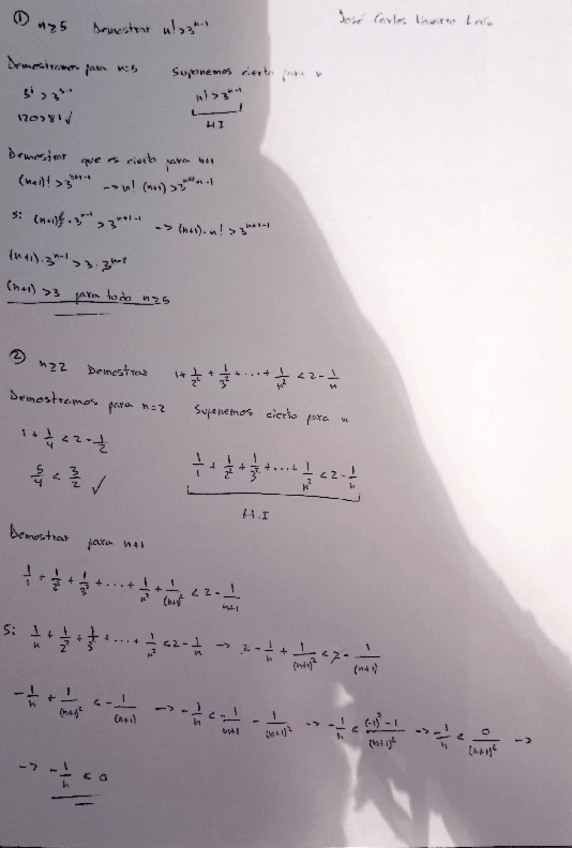 ① n≥5 Demostrar n!>3^(n-1) José Carlos Navarro León
Demostramos para n=5 Suponemos cierto para n
5! > 3^(5-1) n! > 3^(n-1)
120>81 ✓ HI
Demostrar que es cierto para n+1
(n+1)! > 3^(n+1-1) -> n! (n+1) >
Si (n+1) · 3^(n-1) > 3^(n+1-1) -> (n+1)· n! > 3^(n+1-1)
(n+1)· 3^(n-1) > 3 · 3^(n-1)
(n+1) > 3 para todo n≥5
② n≥2 Demostrar 1 + 1/2² + 1/3² + ... + 1/n² < 2 - 1/n
Demostramos para n=2 Suponemos cierto para n
1 + 1/4 < 2 - 1/2 1/1 + 1/2² + 1/3² + ... + 1/n² < 2 - 1/n
5/4 < 3/2 ✓ H.I
Demostrar para n+1
1/1 + 1/2² + 1/3² + ... + 1/n² + 1/(n+1)² < 2 - 1/(n+1)
Si 1/n + 1/2² + 1/3² + ... + 1/n² < 2 - 1/n -> 2 - 1/n + 1/(n+1)² < 2 - 1/(n+1)
-1/n + 1/(n+1)² < -1/(n+1) -> -1/n < -1/(n+1) - 1/(n+1)² -> -1/n < ((-1)² - 1)/(n+1)² -> -1/n < 0/(n+1)² ->
-> -1/n < 0